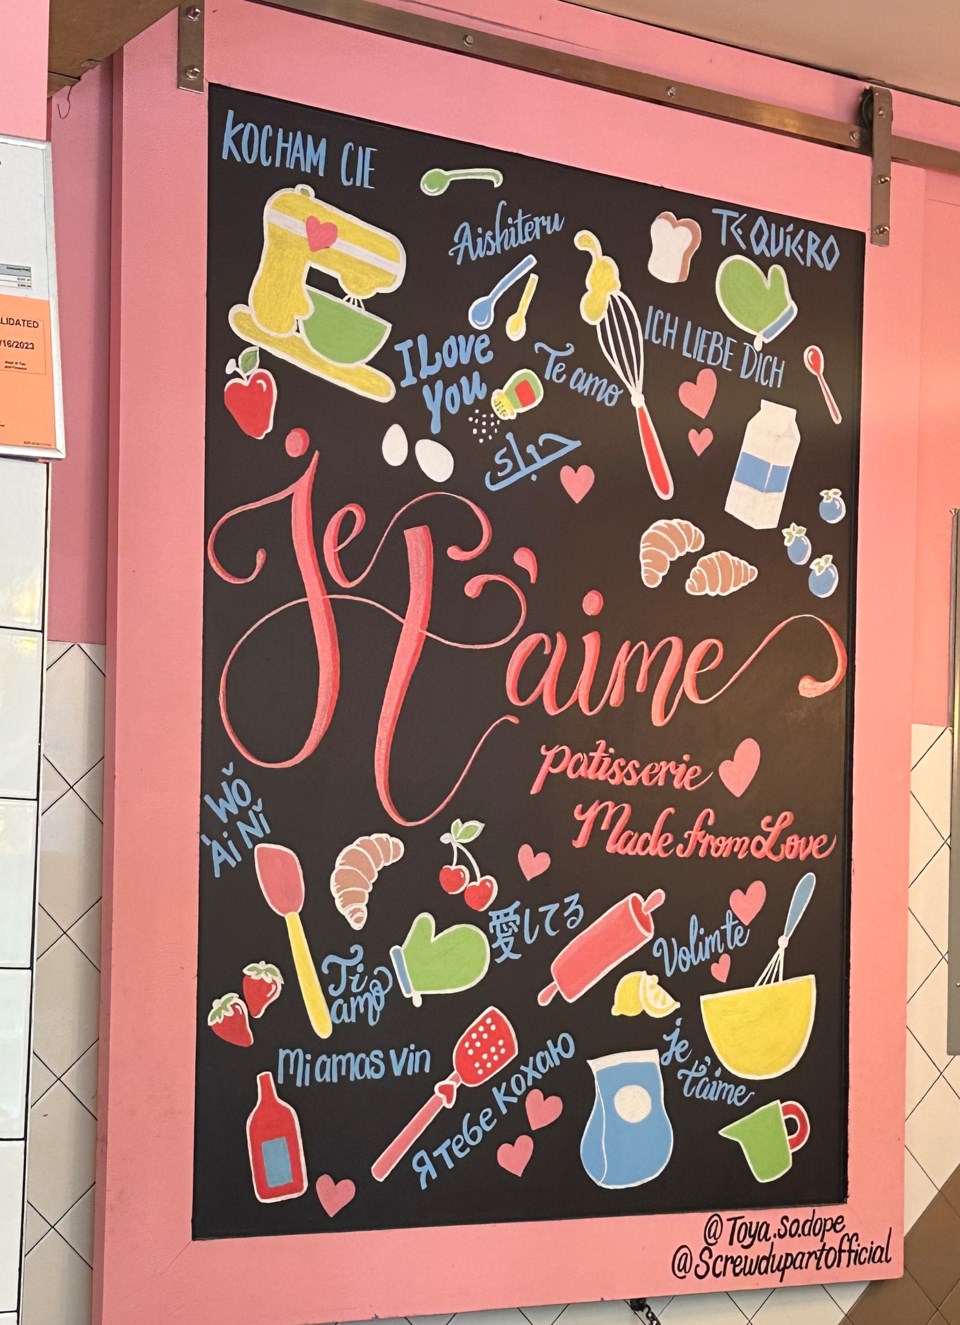 KOCHAM CIE
Aishiteru
TE QUIERO
I Love
You
Te amo
ICH LIEBE DICH
حباك
LIDATED
/16/2023
Je t'aime
patisserie
Made from Love
Wǒ
Ài Nǐ
愛してる
Volim te
Ti
amo
Mi amas vin
Я тебе кохаю
je
t'aime
@Toya.so.dope
@Screwdupartofficial